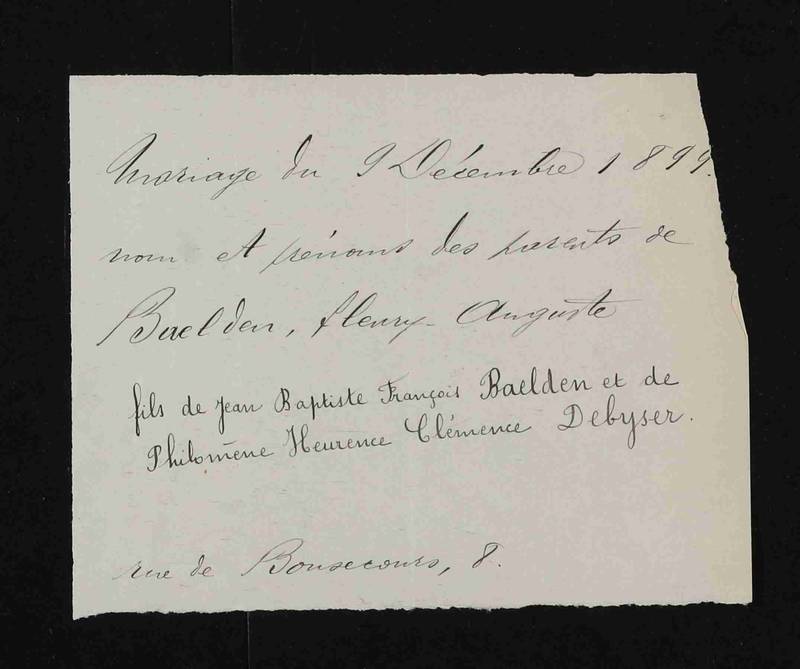 Mariage du 9 Décembre 1899.
nom et prénoms des parents de
Baelden, fleury Auguste
fils de Jean Baptiste François Baelden et de
Philomène Heurence Clémence Debyser.
rue de Bonsecours, 8.